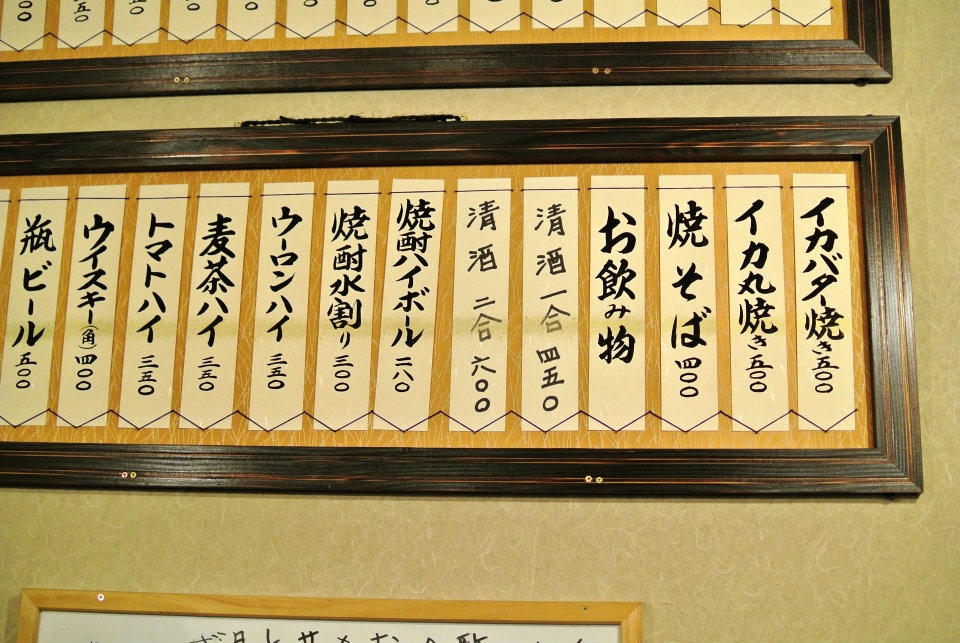 イカバター焼き五〇〇
イカ丸焼き五〇〇
焼そば四〇〇
お飲み物
清酒一合四五〇
清酒二合六〇〇
焼酎ハイボール二八〇
焼酎水割り三〇〇
ウーロンハイ三五〇
麦茶ハイ三五〇
トマトハイ三五〇
ウイスキー(角)四〇〇
瓶ビール五〇〇